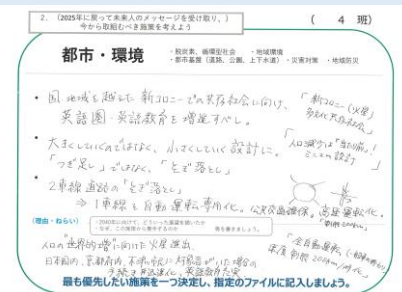 2. （2025年に戻って未来人のメッセージを受け取り、）
今から取組むべき施策を考えよう
（ 4 班）
都市・環境
・脱炭素、循環型社会 ・地域環境
・都市基盤（道路、公園、上下水道）・災害対策 ・地域防災
・国、地域を越えた新コロニーでの共存社会に向け、
英語圏・英語教育を増進すべし。
「新コロニー（火星）
・大きくしていくのではなく、小さくしていく設計に。
「つぎ足し」ではなく、「そぎ落とし」
「人口減少は"当たり前"」
ミニマム設計
・2車線道路の「そぎ落とし」
⇒ 1車線を自動運転専用化。公共交通確保。高速運転化。
（理由・ねらい）
・2040年に向けて、どういった展望を描いたか
・なぜ、この施策から着手するのか
等を書きましょう。
人口の"世界的増"に向けた火星進出。
日本国内、京都府内、
英語教育充実
最も優先したい施策を一つ決定し、指定のファイルに記入しましょう。